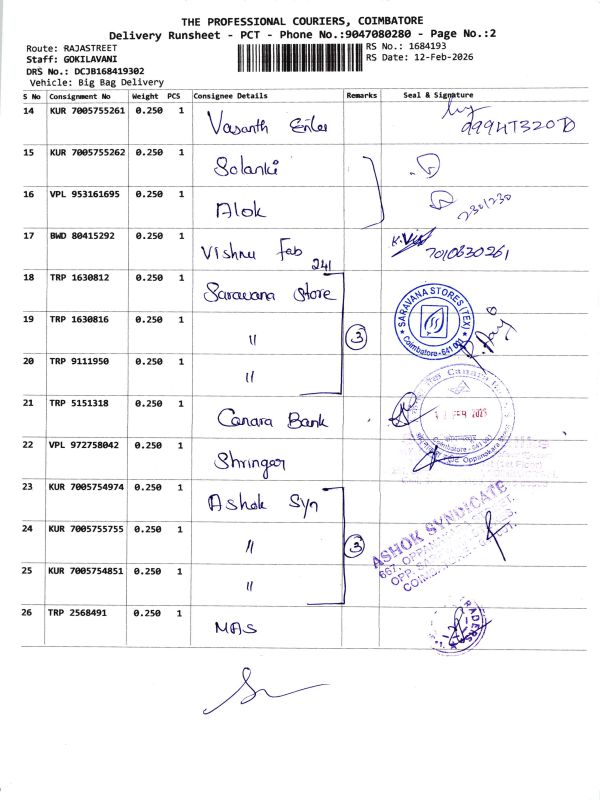 THE PROFESSIONAL COURIERS, COIMBATORE
Delivery Runsheet - PCT - Phone No.:9047080280 - Page No.:2
Route: RAJASTREET
RS No.: 1684193
Staff: GOKILAVANI
RS Date: 12-Feb-2026
DRS No.: DCJB168419302
Vehicle: Big Bag Delivery
S No Consignment No Weight PCS Consignee Details Remarks Seal & Signature
14 KUR 7005755261 0.250 1 Vasanth
15 KUR 7005755262 0.250 1 Solanki
16 VPL 953161695 0.250 1 Alok
17 BWD 80415292 0.250 1 Vishnu Fab 241 7010630261
18 TRP 1630812 0.250 1 Saravana Store
SARAVANA STORES (TEX)
Coimbatore - 641 001
19 TRP 1630816 0.250 1 " 3
20 TRP 9111950 0.250 1 "
21 TRP 5151318 0.250 1 Canara Bank
22 VPL 972758042 0.250 1 Shringar
23 KUR 7005754974 0.250 1 Ashok Syn
24 KUR 7005755755 0.250 1 " 3
ASHOK SYNDICATE
25 KUR 7005754851 0.250 1 "
26 TRP 2568491 0.250 1 MAS